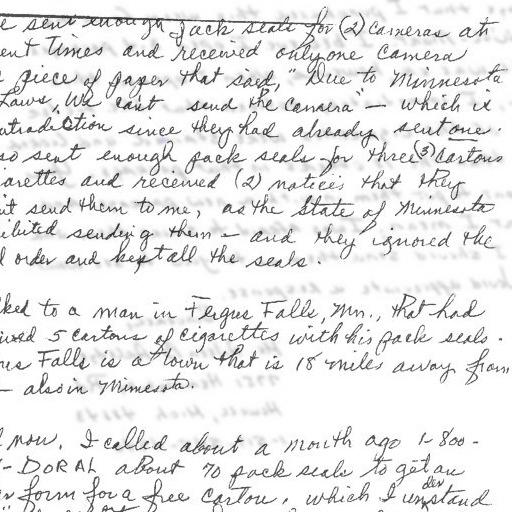 e sent enough pack seals for (2) cameras at
ent times and received only one camera
piece of paper that said, "Due to Minnesota
Laws, We can't send the Camera" - which is
ntradiction since they had already sent one.
so sent enough pack seals for three (3) cartons
arettes and received (2) notices that they
't send them to me, as the State of Minnesota
ibited sending them - and they ignored the
l order and kept all the seals.
lked to a man in Fergus Falls, Mn., that had
ived 5 cartons of cigarettes with his pack seals.
us Falls is a town that is 18 miles away from
- also in Minnesota.
d now, I called about a month ago 1-800-
- DORAL about 70 pack seals to get an
r form for a free carton, which I understand